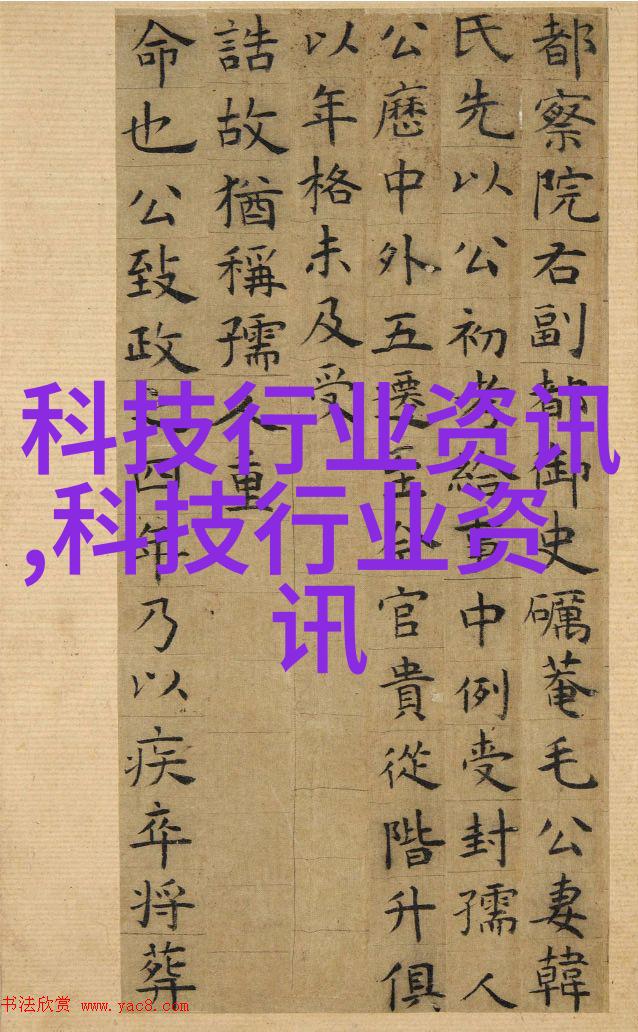 都察院右副都御史礪菴毛公妻韓
氏先以公初考給事中例受封孺人
公歷中外五遷至今官貴從階升俱
以年格未及受
誥故猶稱孺人重
命也公致政之四年乃以疾卒将葬
科技行业资讯
,科技行业资
讯
书法欣赏 www.yac8.com